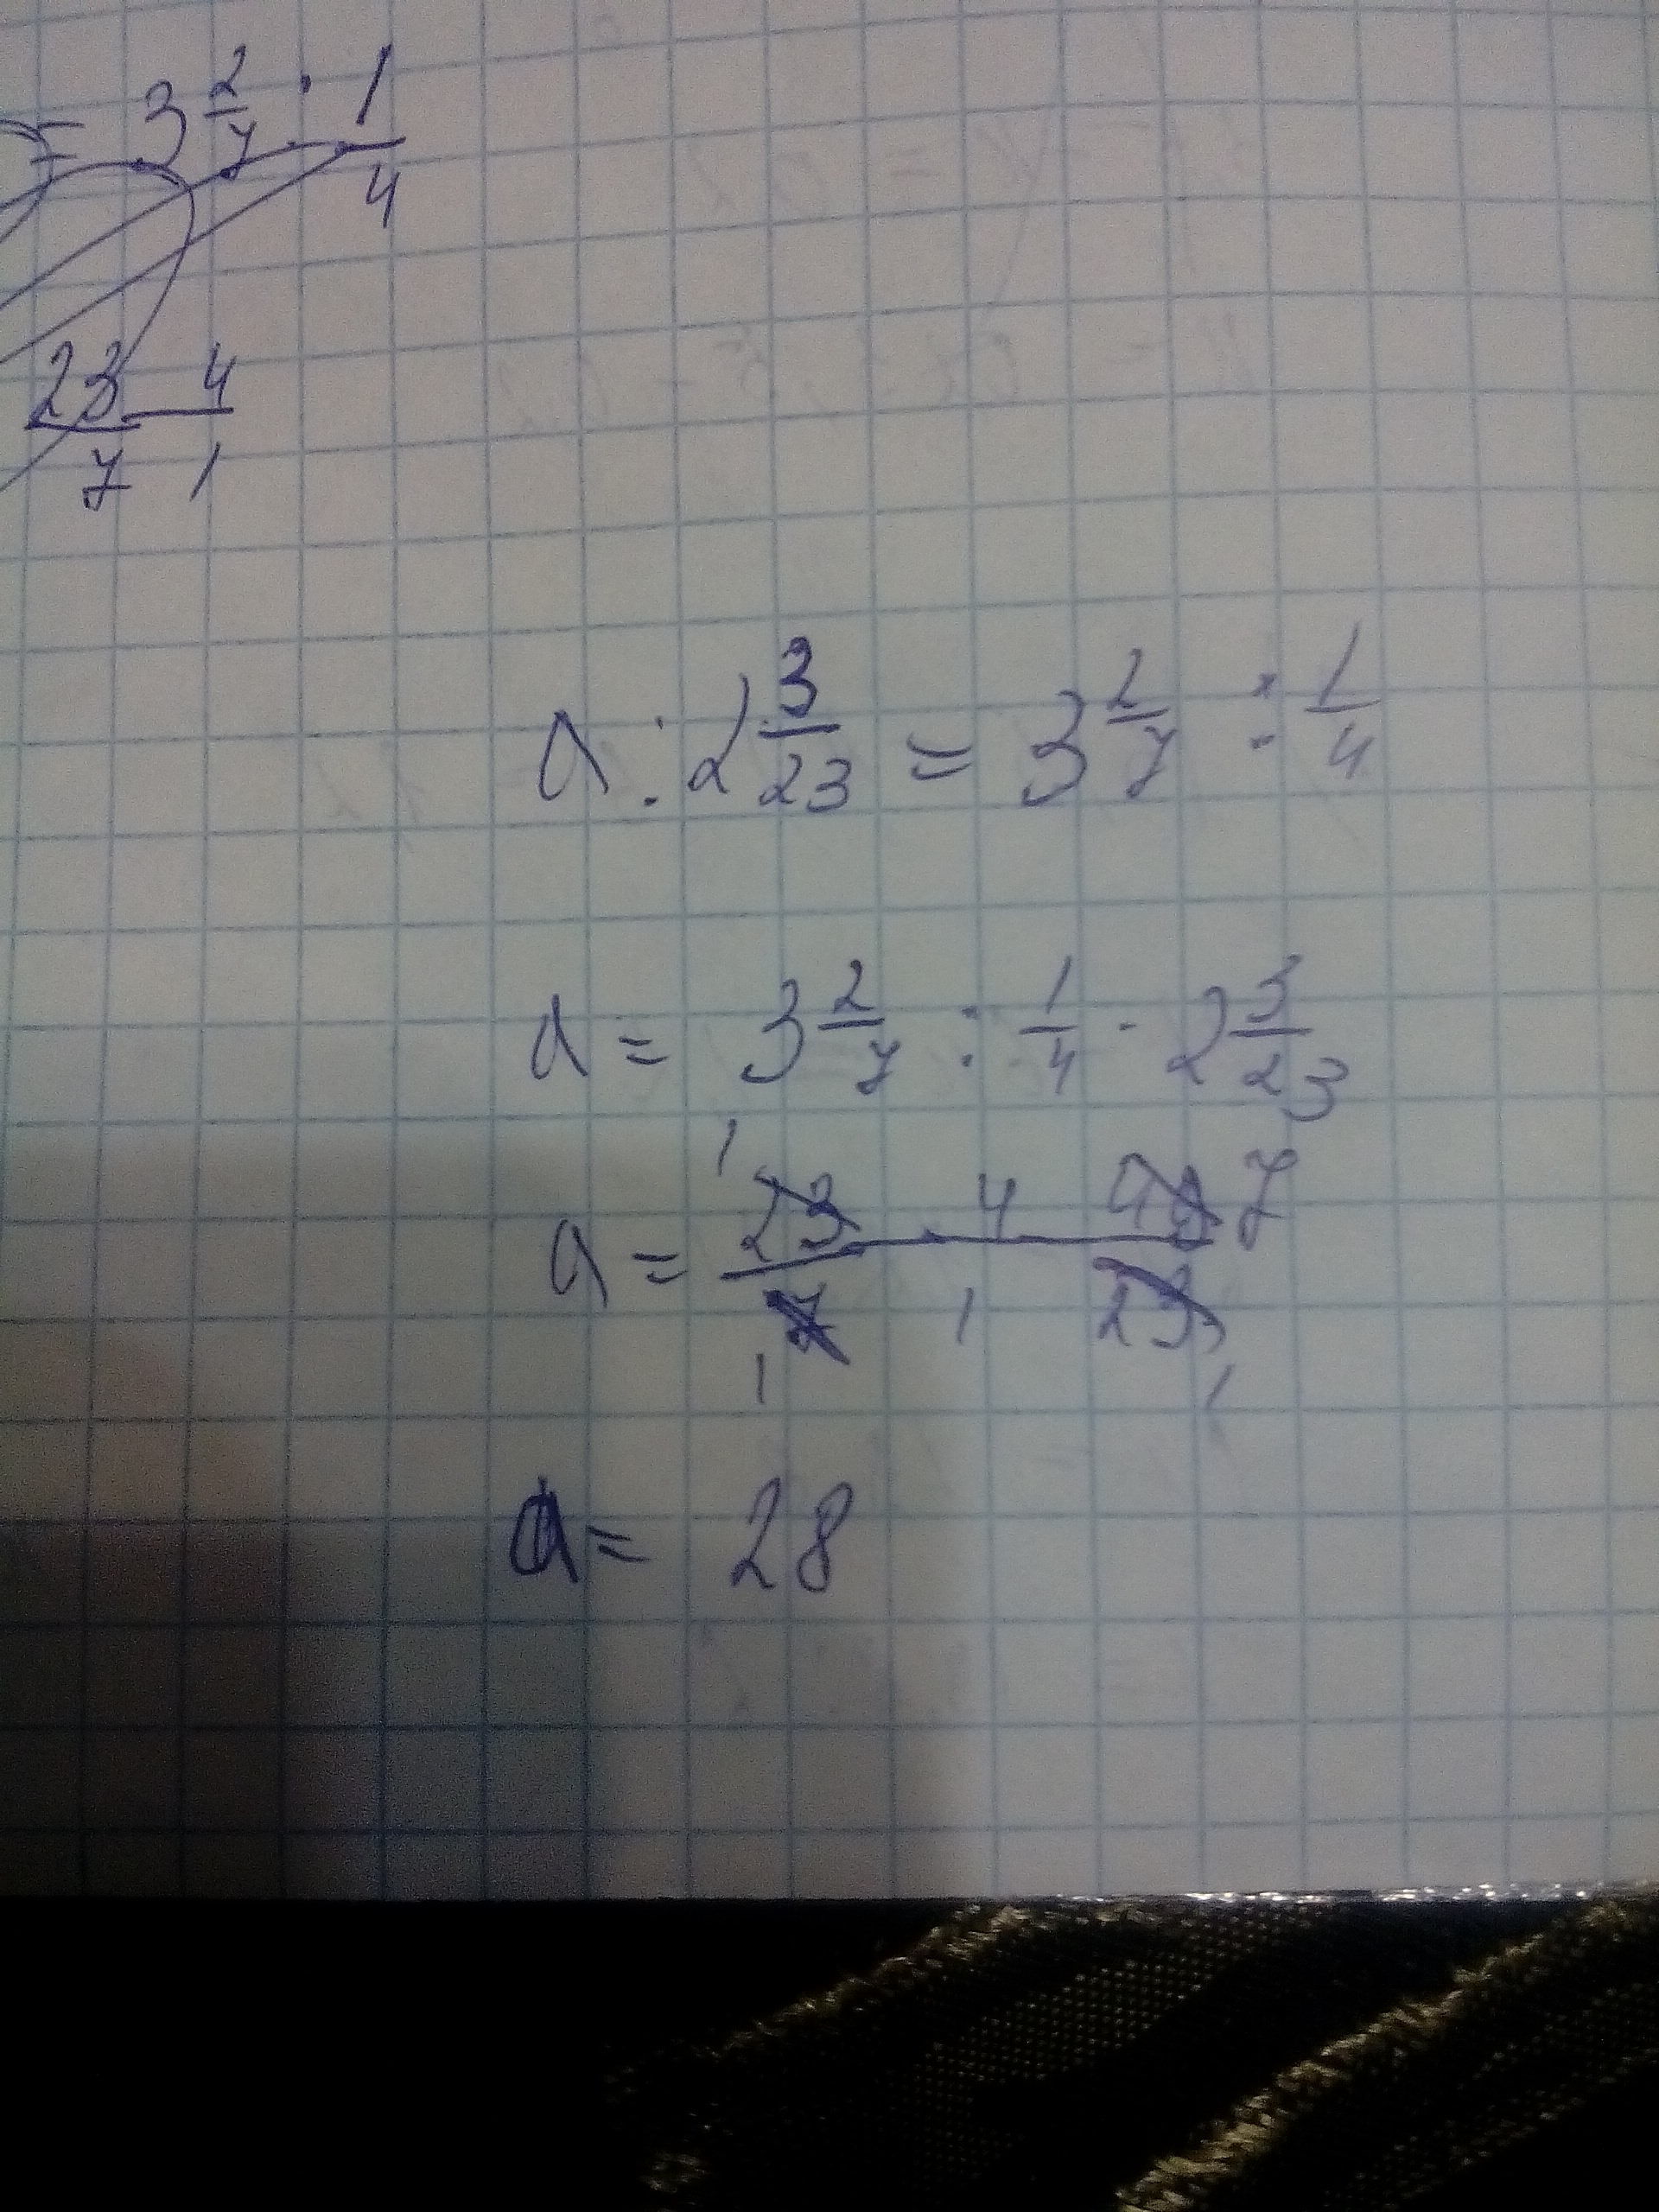 = 3 2/7 · 1/4
23/7 4/1
a : 2 3/23 = 3 2/7 : 1/4
a = 3 2/7 : 1/4 · 2 3/23
1
a = 23/7 · 4/1 · 49/23 7
1 1
a = 28